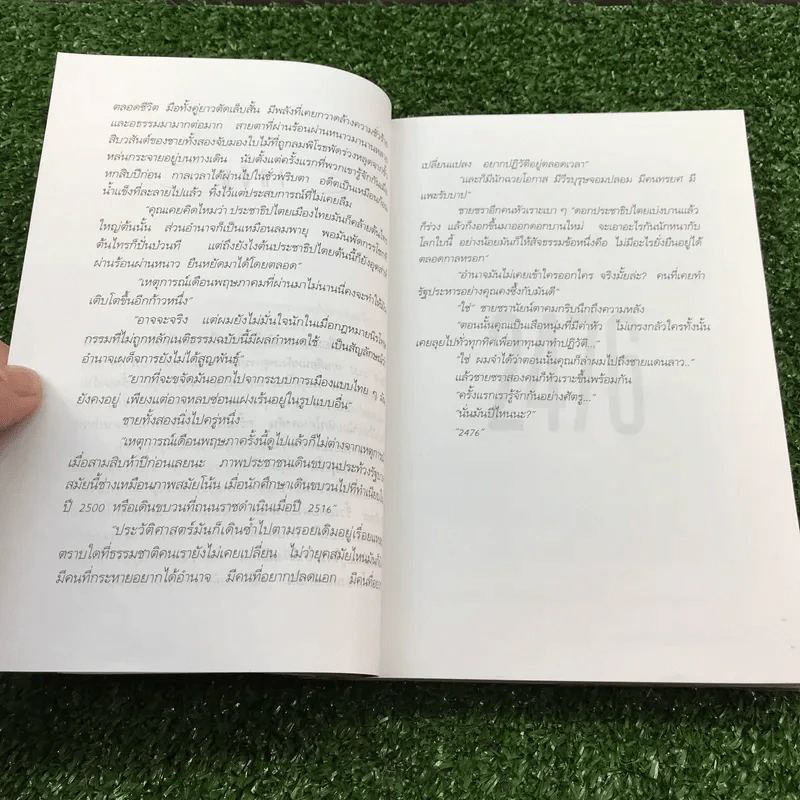 ตลอดชีวิต มือทั้งคู่ยาวตัดเล็บสั้น มีพลังที่เคยกวาดล้างความชั่วร้าย
และอธรรมมามากต่อมาก สายตาที่ผ่านร้อนผ่านหนาวมานานหลาย
สิบวสันต์ของชายทั้งสองจับมองใบไม้ที่ถูกลมพิโรธพัดร่วงหลุดจากขั้ว
หล่นกระจายอยู่บนทางเดิน นับตั้งแต่ครั้งแรกที่พวกเขารู้จักกันเมื่อ
หกสิบปีก่อน กาลเวลาได้ผ่านไปในชั่วพริบตา อดีตเป็นเหมือนก้อน
น้ำแข็งที่ละลายไปแล้ว ทิ้งไว้แต่ประสบการณ์ที่ไม่เคยลืม
"คุณเคยคิดไหมว่า ประชาธิปไตยเมืองไทยมันก็คล้ายต้นไทร
ใหญ่ต้นนั้น ส่วนอำนาจก็เป็นเหมือนลมพายุ พอมันพัดกรรโชกที
ต้นไทรก็ปั่นป่วนที แต่ถึงยังไงต้นประชาธิปไตยต้นนี้ก็ยังอุตส่าห์
ผ่านร้อนผ่านหนาว ยืนหยัดมาได้โดยตลอด"
"เหตุการณ์เดือนพฤษภาคมที่ผ่านมาไม่นานนี่คงจะทำให้มัน
เติบโตขึ้นอีกก้าวหนึ่ง"
"อาจจะจริง แต่ผมยังไม่มั่นใจนักในเมื่อกฎหมายนิรโทษ
กรรมที่ไม่ถูกหลักเนติธรรมฉบับนี้มีผลกำหนดใช้ เป็นสัญลักษณ์ว่า
อำนาจเผด็จการยังไม่ได้สูญพันธุ์"
"ยากที่จะขจัดมันออกไปจากระบบการเมืองแบบไทย ๆ มัน
ยังคงอยู่ เพียงแต่อาจหลบซ่อนแฝงเร้นอยู่ในรูปแบบอื่น"
ชายทั้งสองนิ่งไปครู่หนึ่ง
"เหตุการณ์เดือนพฤษภาครั้งนี้ดูไปแล้วก็ไม่ต่างจากเหตุการณ์
เมื่อสามสิบห้าปีก่อนเลยนะ ภาพประชาชนเดินขบวนประท้วงรัฐบาล
สมัยนี้ช่างเหมือนภาพสมัยโน้น เมื่อนักศึกษาเดินขบวนไปที่ทำเนียบใน
ปี 2500 หรือเดินขบวนที่ถนนราชดำเนินเมื่อปี 2516"
"ประวัติศาสตร์มันก็เดินซ้ำไปตามรอยเดิมอยู่เรื่อยแหละ
ตราบใดที่ธรรมชาติคนเรายังไม่เคยเปลี่ยน ไม่ว่ายุคสมัยไหนมันก็
มีคนที่กระหายอยากได้อำนาจ มีคนที่อยากปลดแอก มีคนที่อยาก
เปลี่ยนแปลง อยากปฏิวัติอยู่ตลอดเวลา"
"และก็มีนักฉวยโอกาส มีวีรบุรุษจอมปลอม มีคนทรยศ มี
แพะรับบาป"
ชายชราอีกคนหัวเราะเบา ๆ "ดอกประชาธิปไตยเบ่งบานแล้ว
ก็ร่วง แล้วก็งอกขึ้นมาออกดอกบานใหม่ จะเอาอะไรกันนักหนากับ
โลกใบนี้ อย่างน้อยมันก็ให้สัจธรรมข้อหนึ่งคือ ไม่มีอะไรยั่งยืนอยู่ได้
ตลอดกาลหรอก"
"อำนาจมันไม่เคยเข้าใครออกใคร จริงมั้ยล่ะ? คนที่เคยทำ
รัฐประหารอย่างคุณคงซึ้งกับมันดี"
"ใช่" ชายชรานัยน์ตาคมกริบนึกถึงความหลัง
"ตอนนั้นคุณเป็นเสือหนุ่มที่มีค่าหัว ไม่เกรงกลัวใครทั้งนั้น
เคยลุยไปทั่วทุกทิศเพื่อหาทุนมาทำปฏิวัติ..."
"ใช่ ผมจำได้ว่าตอนนั้นคุณก็ล่าผมไปถึงชายแดนลาว.."
แล้วชายชราสองคนก็หัวเราะขึ้นพร้อมกัน
"ครั้งแรกเรารู้จักกันอย่างศัตรู..."
"นั่นมันปีไหนนะ?"
"2476"